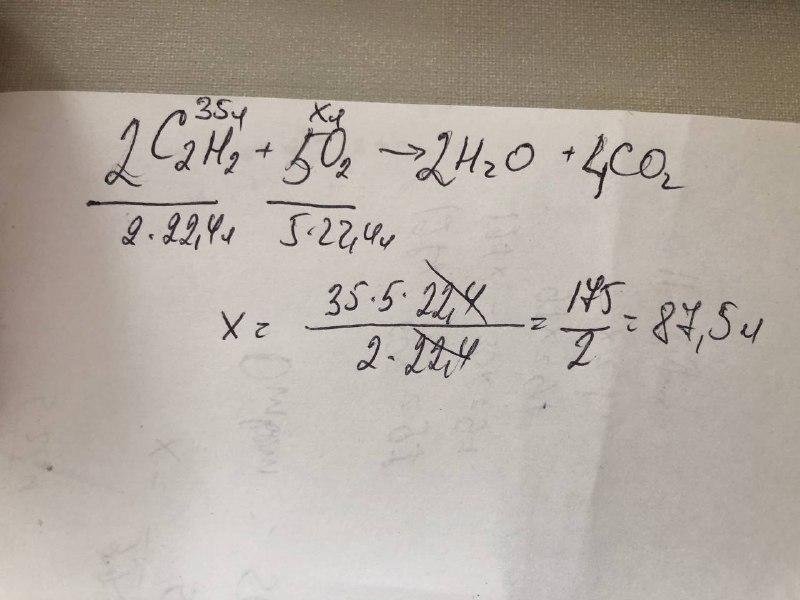 35л хл
2C₂H₂ + 5O₂ → 2H₂O + 4CO₂
2·22,4л 5·22,4л
x = 35·5·22,4 / 2·22,4 = 175/2 = 87,5л